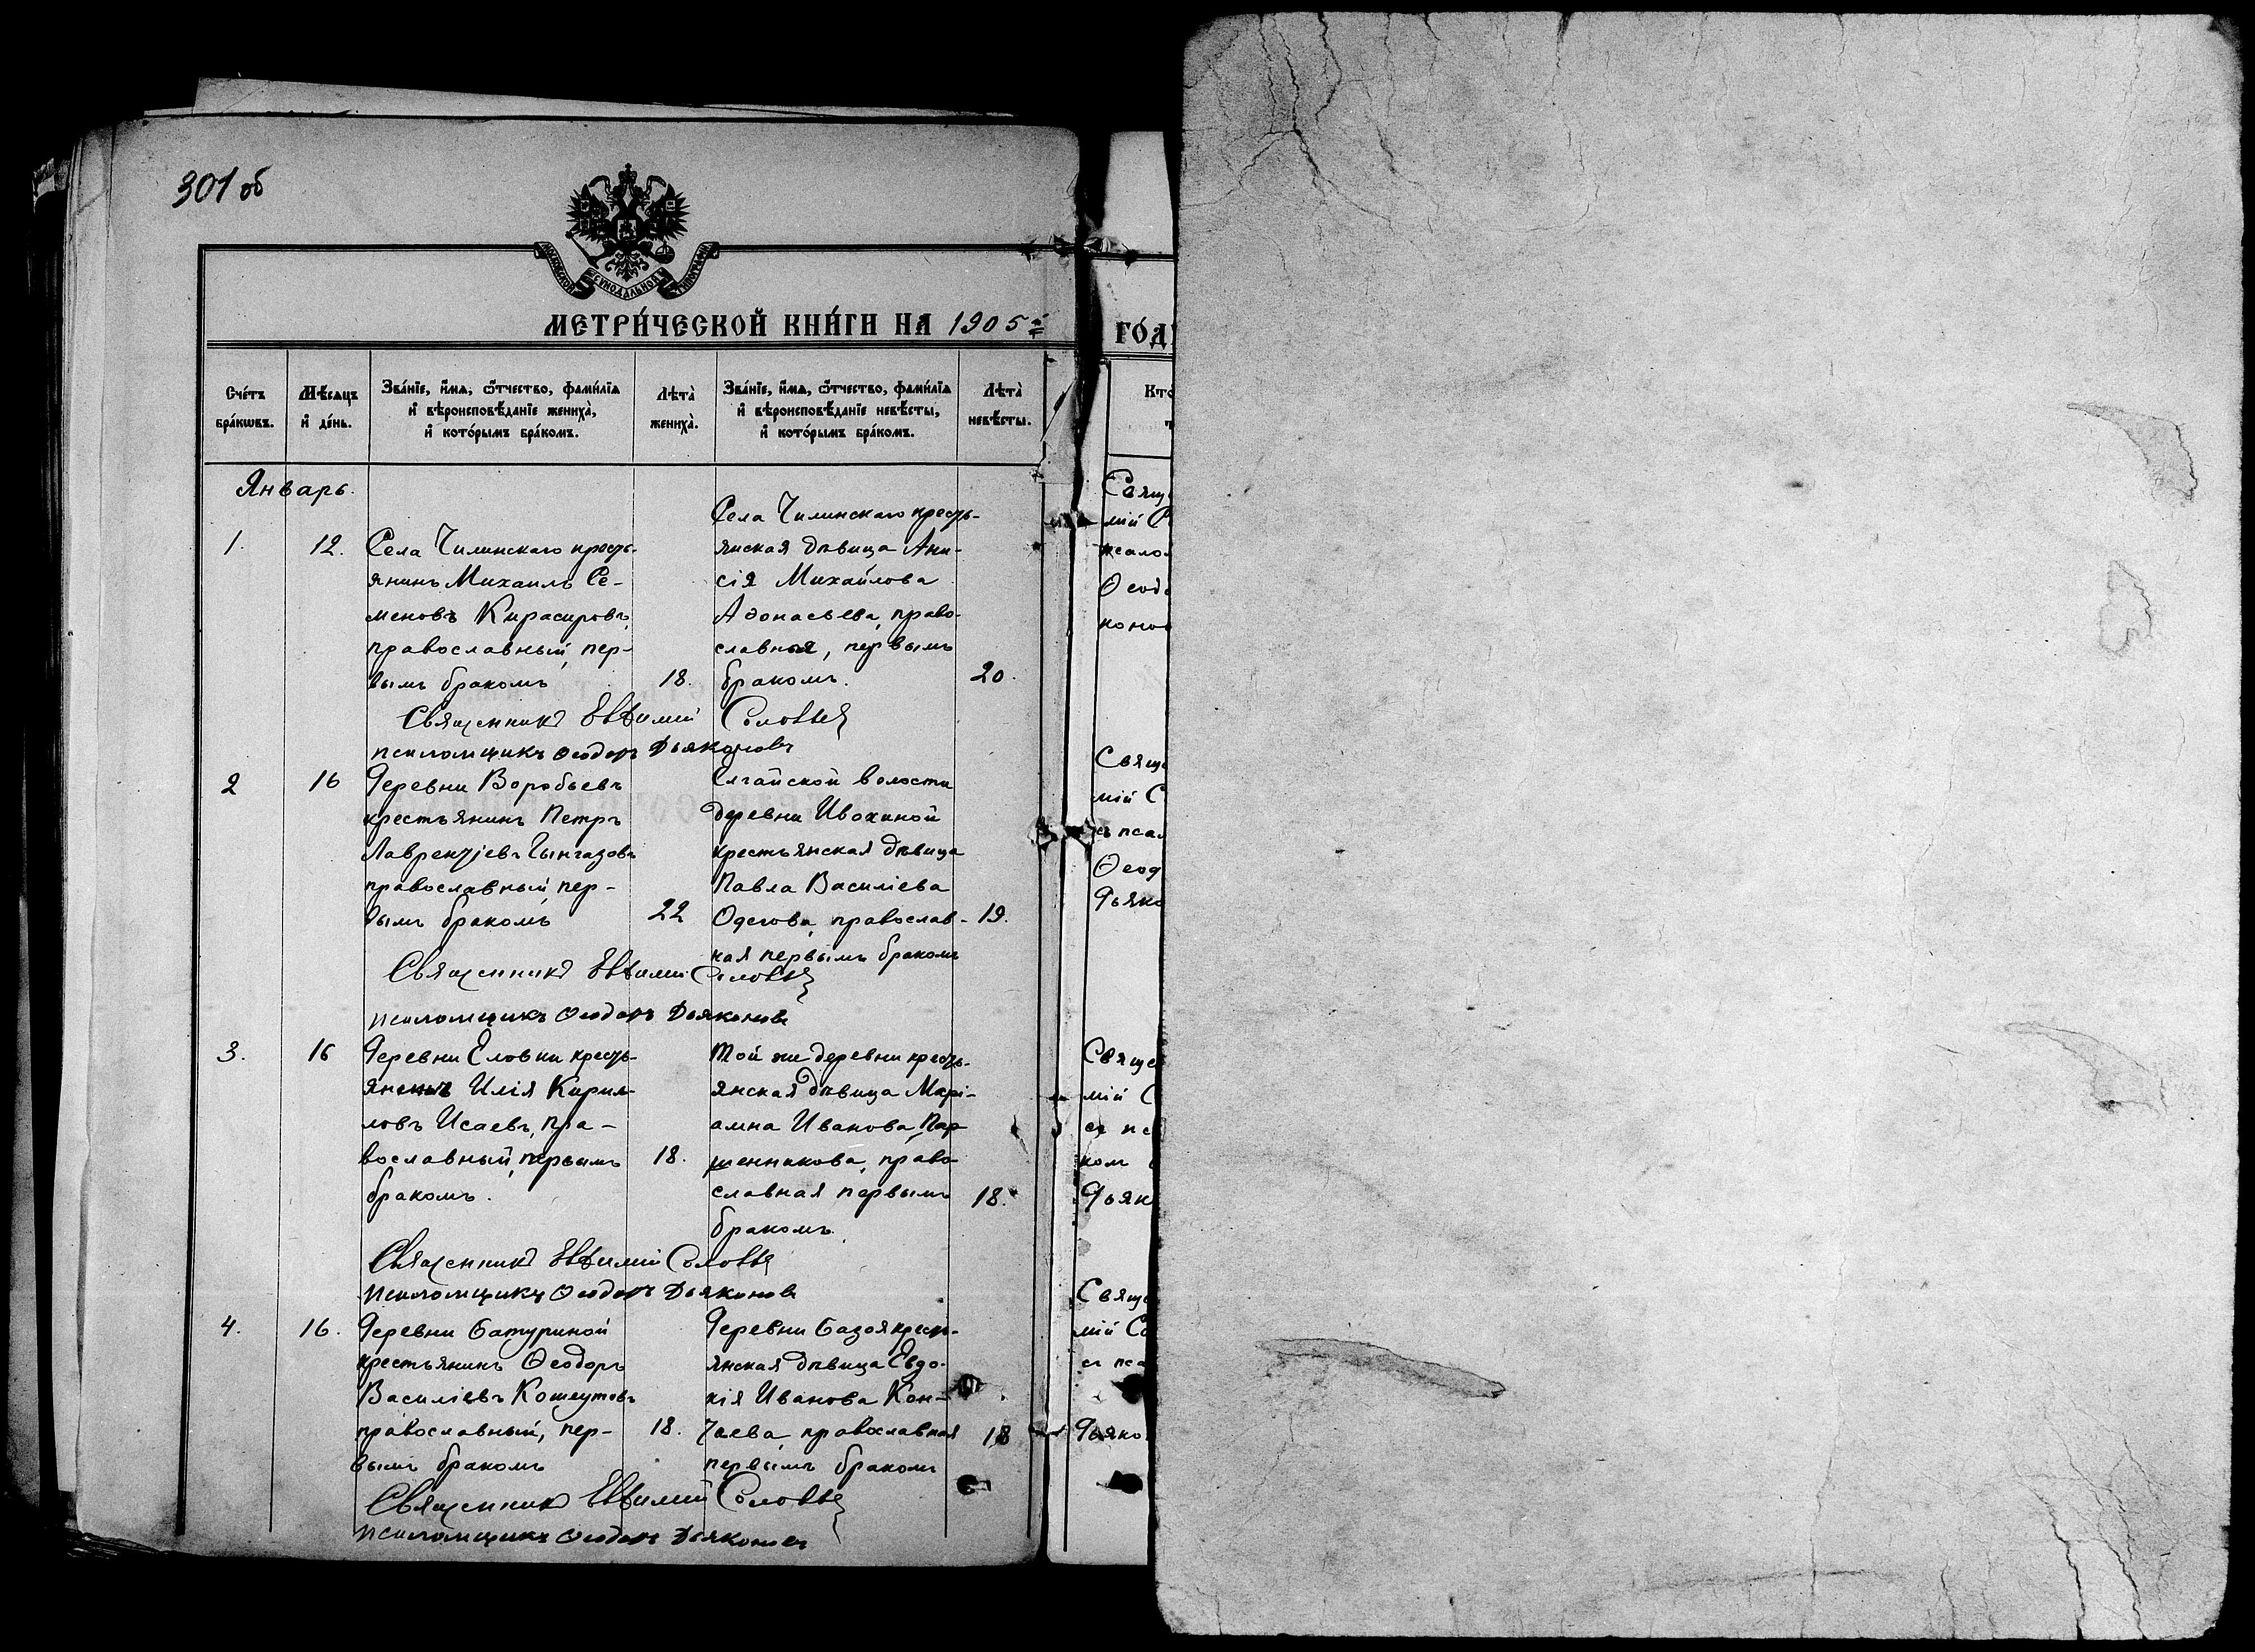 301 об
МОСКОВСКОЙ СѴНОДАЛЬНОЙ ТИПОГРАФІИ
МЕТРИ́ЧЕСКОЙ КНИ́ГИ НА 1905 й
ГО́Д
Сче́тъ бра́кѡвъ.
Мѣ́сяцъ и҆ де́нь.
Зва́нїе, и҆́мѧ, ѻ҆́тчество, фами́лїѧ и҆ вѣроисповѣ́данїе жениха̀, и҆ кото́рымъ бра́комъ.
Лѣта̀ жениха̀.
Зва́нїе, и҆́мѧ, ѻ҆́тчество, фами́лїѧ и҆ вѣроисповѣ́данїе невѣ́сты, и҆ кото́рымъ бра́комъ.
Лѣта̀ невѣ́сты.
Кто
Январь.
1.
12.
Села Чилинскаго кресть-
янинъ Михаилъ Се-
меновъ Кирасировъ,
православный, пер-
вымъ бракомъ
18.
Села Чилинскаго кресть-
янская дѣвица Ани-
сія Михайлова
Аѳонасьева, право-
славная, первымъ
бракомъ.
20.
Священникъ Евѳимій Соловьев
псаломщикъ Ѳеодоръ Дьяконовъ
2
16
Деревни Воробьевъ
крестьянинъ Петръ
Лаврентіевъ Чынгазовъ
православный, пер-
вымъ бракомъ
22
Елгайской волости
деревни Ивохиной
крестьянская дѣвица
Павла Василіева
Одегова, православ-
ная первымъ бракомъ
19.
Священникъ Евѳимій Соловьев
псаломщикъ Ѳеодоръ Дьяконовъ
3.
16
Деревни Еловки кресть-
янинъ Илія Кирил-
ловъ Исаевъ, пра-
вославный, первымъ
бракомъ.
18.
Той же деревни кресть-
янская дѣвица Марі-
амна Иванова Пар
шенникова, право
славная первымъ
бракомъ.
18.
Священникъ Евѳимій Соловьев
псаломщикъ Ѳеодоръ Дьяконовъ
4.
16.
Деревни Батуриной
крестьянинъ Ѳеодоръ
Василіевъ Кошеутовъ
православный, пер-
вымъ бракомъ
18.
Деревни Базоя крест-
янская дѣвица Евдо-
кія Иванова Кон-
чаева, православная
первымъ бракомъ
18
Священникъ Евѳимій Соловьев
псаломщикъ Ѳеодоръ Дьяконовъ
Свящ
мій С
Ѳеод
коно
Свяще
мій С
съ псал
Ѳеод
Дьяко
Свяще
мій С
съ пс
ком
Дьяк
Свяще
мій Со
съ пса
Дьяко